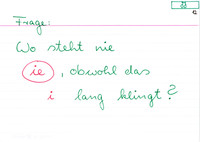 Frage:
Wo steht nie
ie, obwohl das
i lang klingt?